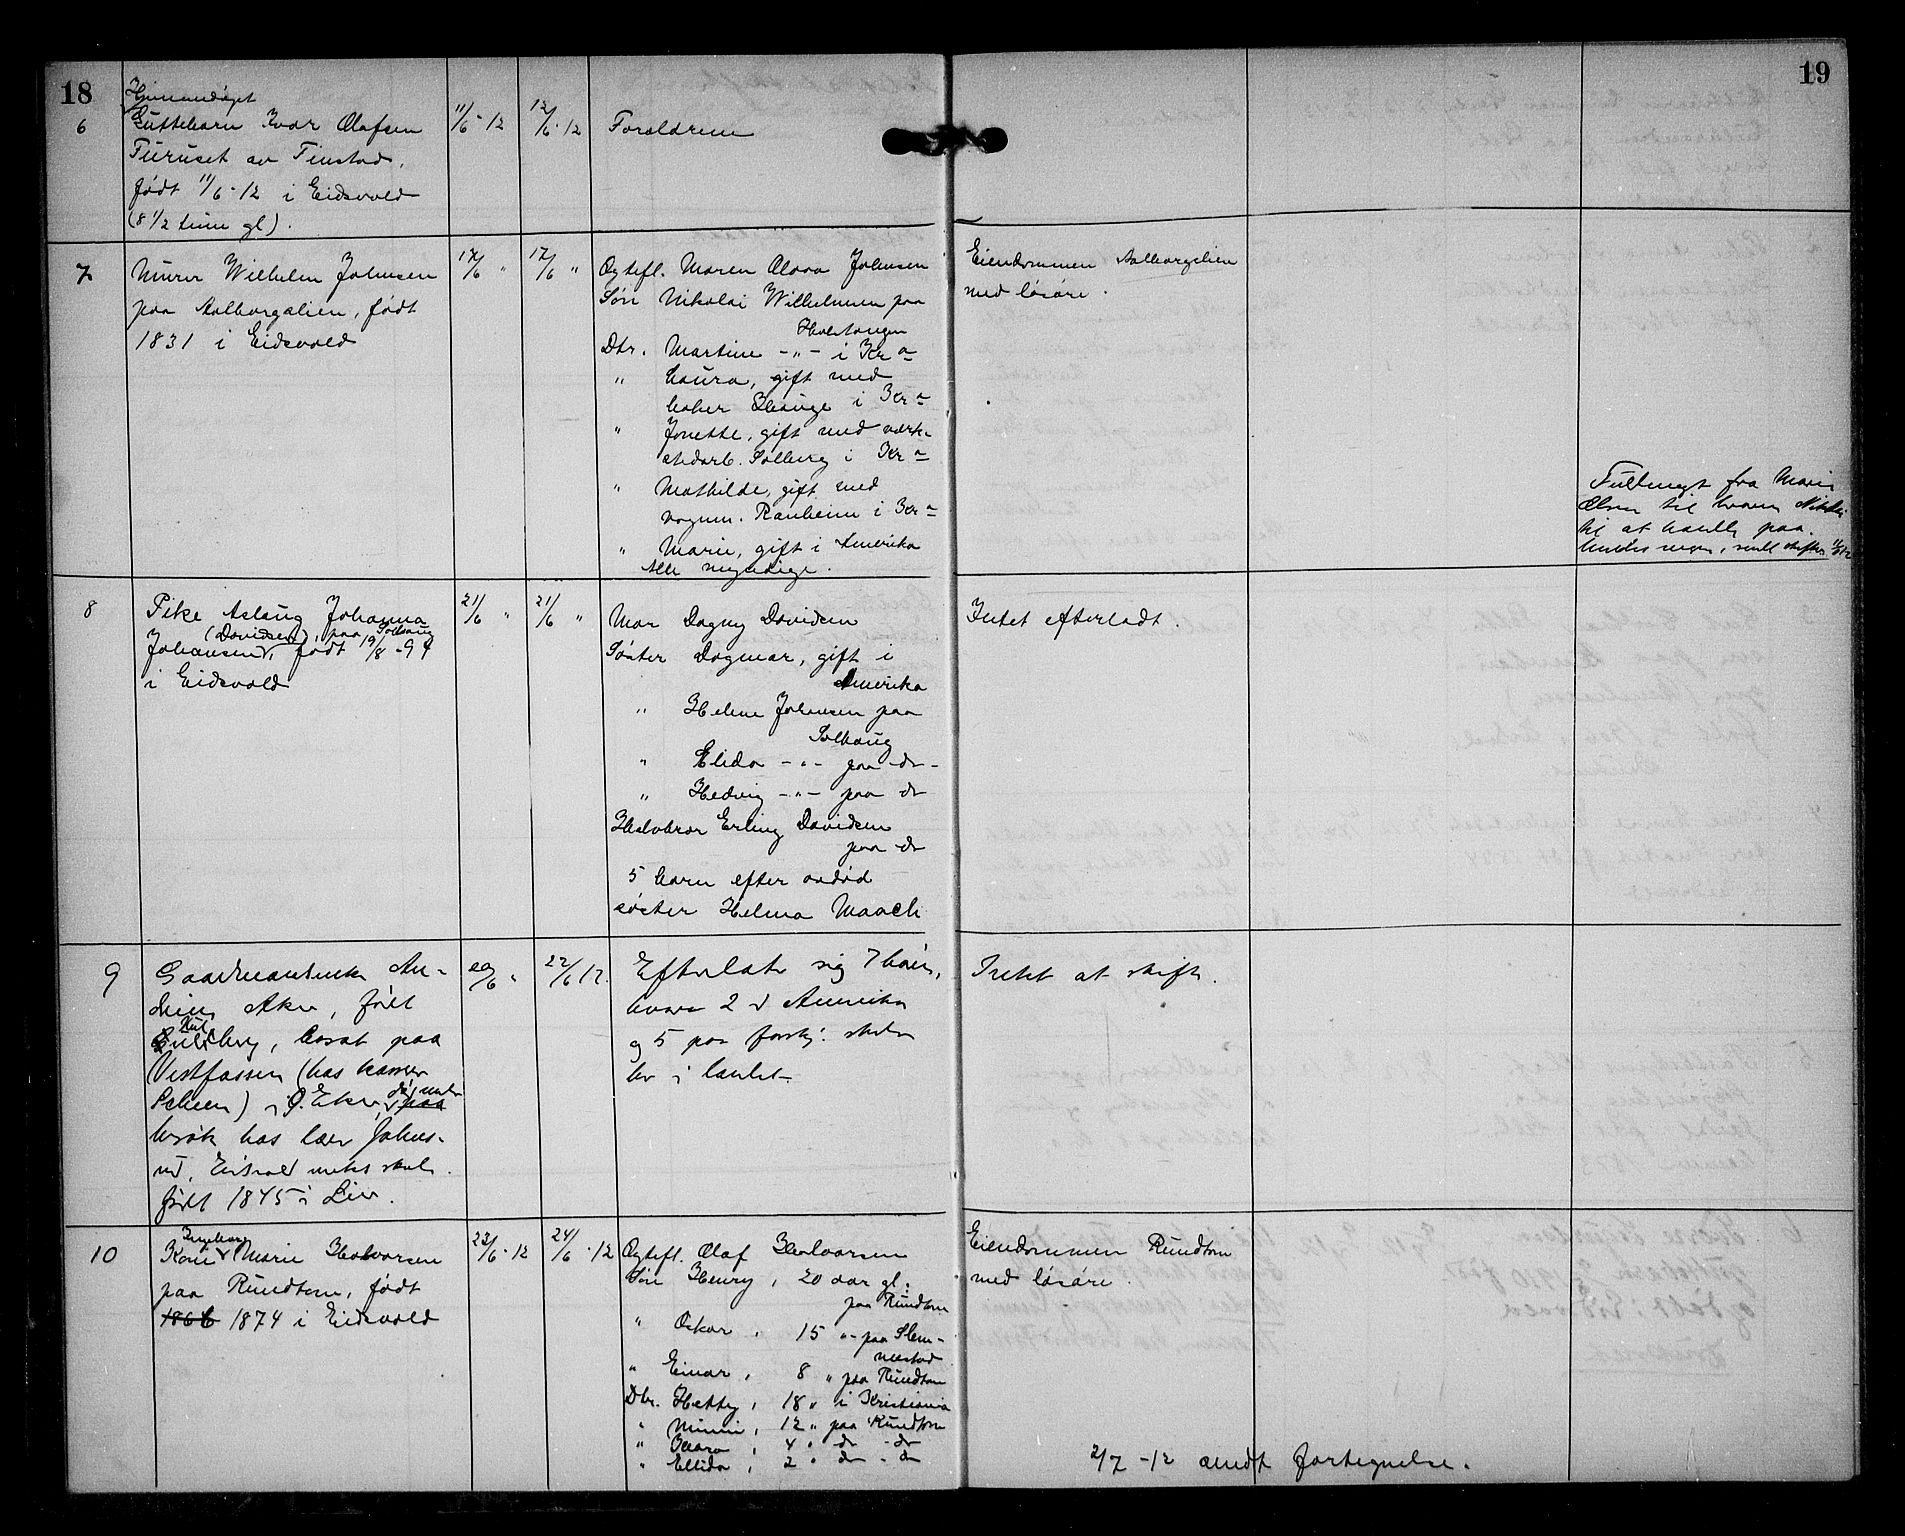 18
19
6
Hjemmedøpt
Guttebarn Ivar Olafsen
Furuset av Finstad,
født 11/6-12 i Eidsvold
(8 1/2 time gl).
11/6-12
12/6-12
Forældrene
7
Murer Wilhelm Johnsen
paa Aalborgalien, født
1831 i Eidsvold
17/6 "
17/6 "
Egtefl. Maren Olava Johnsen
Søn Nikolai Wilhelmsen paa
Holstangen
Dtr. Martine -"- i Kra
" Laura, gift med
baker Hauge i Kra
" Jonette, gift med verk-
stedarb. Solberg i Kra
" Mathilde, gift med
vognm. Ranheim i Kra
" Marie, gift i Amerika
Alle myndige.
Eiendommen Aalborgalien
med løsøre.
Fuldmagt fra Marie
Olsen til broren Nikolai
til at handle paa
hendes vegne, sendt skiftes
8
Pike Aslaug Johanna
(Davidsen), paa Solhaug
Johansen, født 19/8-94
i Eidsvold
21/6 "
21/6 "
Mor Dagny Davidsen
Søster Dagmar, gift i
Amerika
" Helene Johnsen paa
Solhaug
" Elida -"- paa do
" Hedvig -"- paa do
Halvbror Erling Davidsen
paa do
5 barn efter avdød
søster Helma Maach
Intet efterladt.
9
Gaardmandsenke An-
drine Aker, født
Guldberg, bosat paa
Vestfossen (hos kasserer
Scheen) i Ø. Eker, død under
paa
besøk hos lærer Johns-
rud, Eidsvold
født 1845 i Lier.
20/6 "
22/6 12.
Efterlater sig 7 barn,
hvorav 2 i Amerika
og 5 paa forskj. steder
her i landet.
Intet at skifte.
10
Ingeborg
Kone Marie Halvorsen
paa Rundtom, født
1866 1874 i Eidsvold
23/6-12
24/6-12
Egtefl. Olaf Halvorsen
Søn Henry, 20 aar gl.
paa Rundtom
" Oskar, 15 "- paa Slem-
mestad
" Einar, 8 " paa Rundtom
Dtr. Hetty, 18 " i Kristiania
" Minni, 12 " paa Rundtom
" Klara, 4 " do - do
" Ellida, 2 " do - do
Eiendommen Rundtom
med løsøre.
2/7-12 sendt fortegnelse.